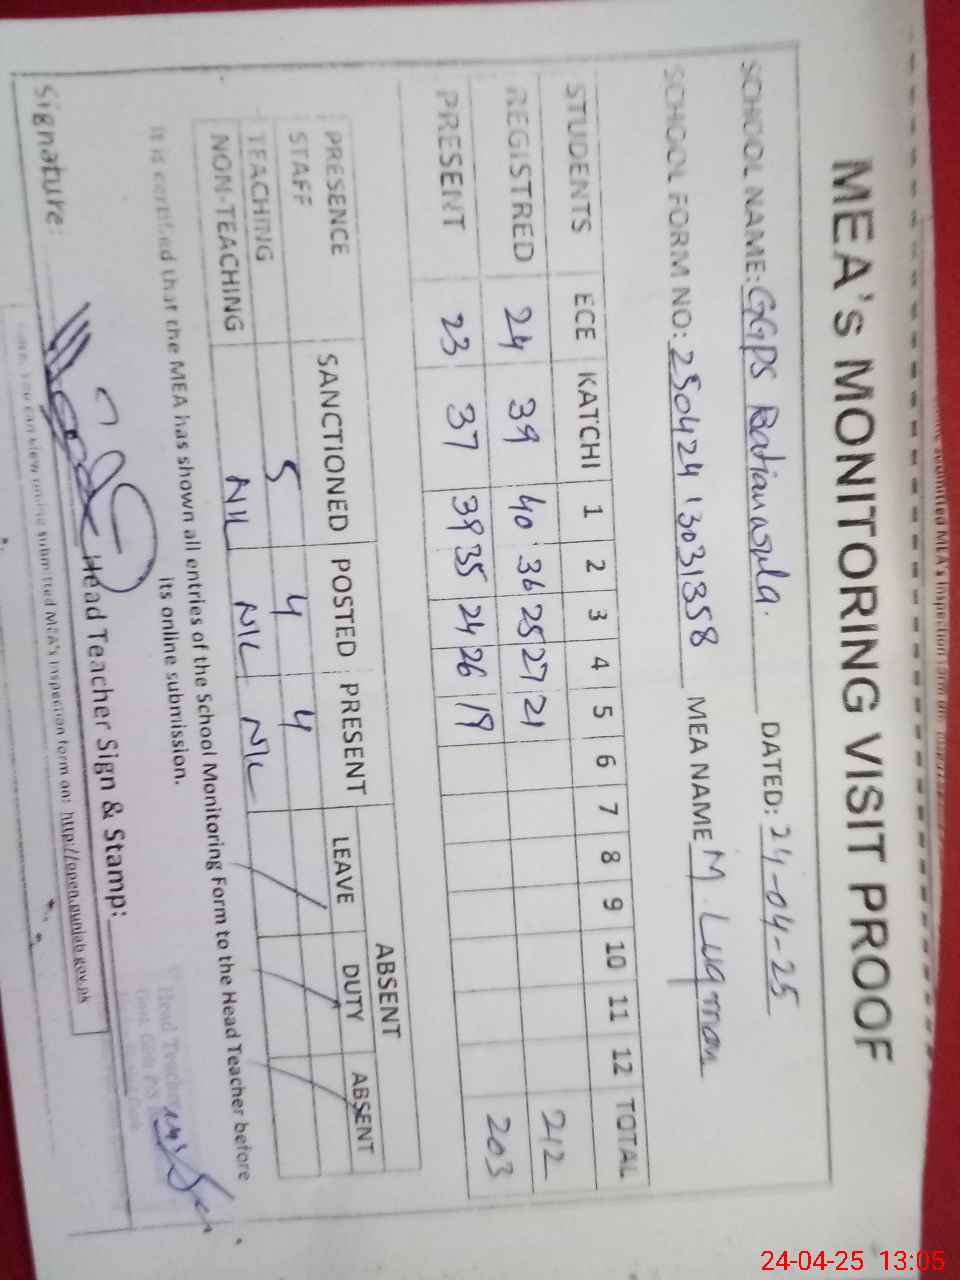 MEA's MONITORING VISIT PROOF
SCHOOL NAME: GGPS Ratianwala. DATED: 24-04-25
SCHOOL FORM NO: 25042413031358 MEA NAME M. Luqman
STUDENTS ECE KATCHI 1 2 3 4 5 6 7 8 9 10 11 12 TOTAL
REGISTRED 24 39 40 36 25 27 21 212
PRESENT 23 37 39 35 24 26 19 203
PRESENCE SANCTIONED POSTED PRESENT ABSENT
STAFF LEAVE DUTY ABSENT
TEACHING 5 4 4
NON-TEACHING NIL NIL NIL
It is certified that the MEA has shown all entries of the School Monitoring Form to the Head Teacher before
its online submission.
Signature: Head Teacher Sign & Stamp:
Head Teacher
you can view online submitted MEA's inspection form on: http://open.punjab.gov.pk
24-04-25 13:05